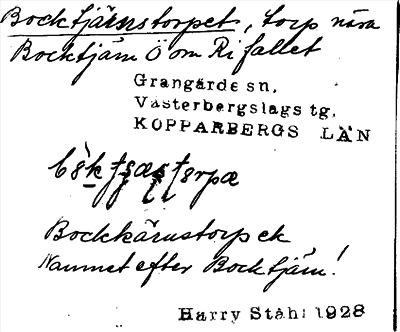 Bocktjärnstorpet, torp nära
Bocktjärn Ö om Rifallet
Grangärde sn,
Västerbergslags tg,
KOPPARBERGS LÄN
Bockkärnstorpek
Namnet efter Bocktjärn!
Harry Ståhl 1928